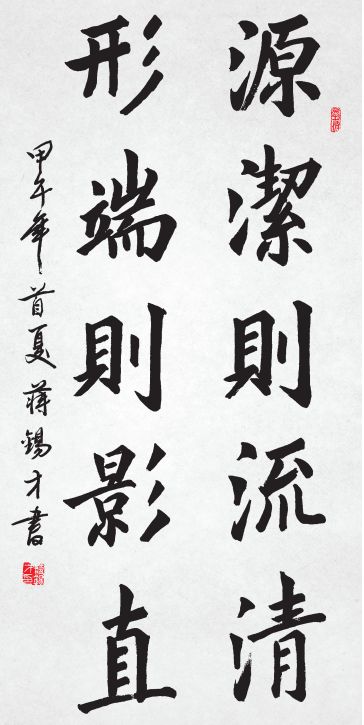 源潔則流清
形端則影直
甲午年首夏蔣錫才書